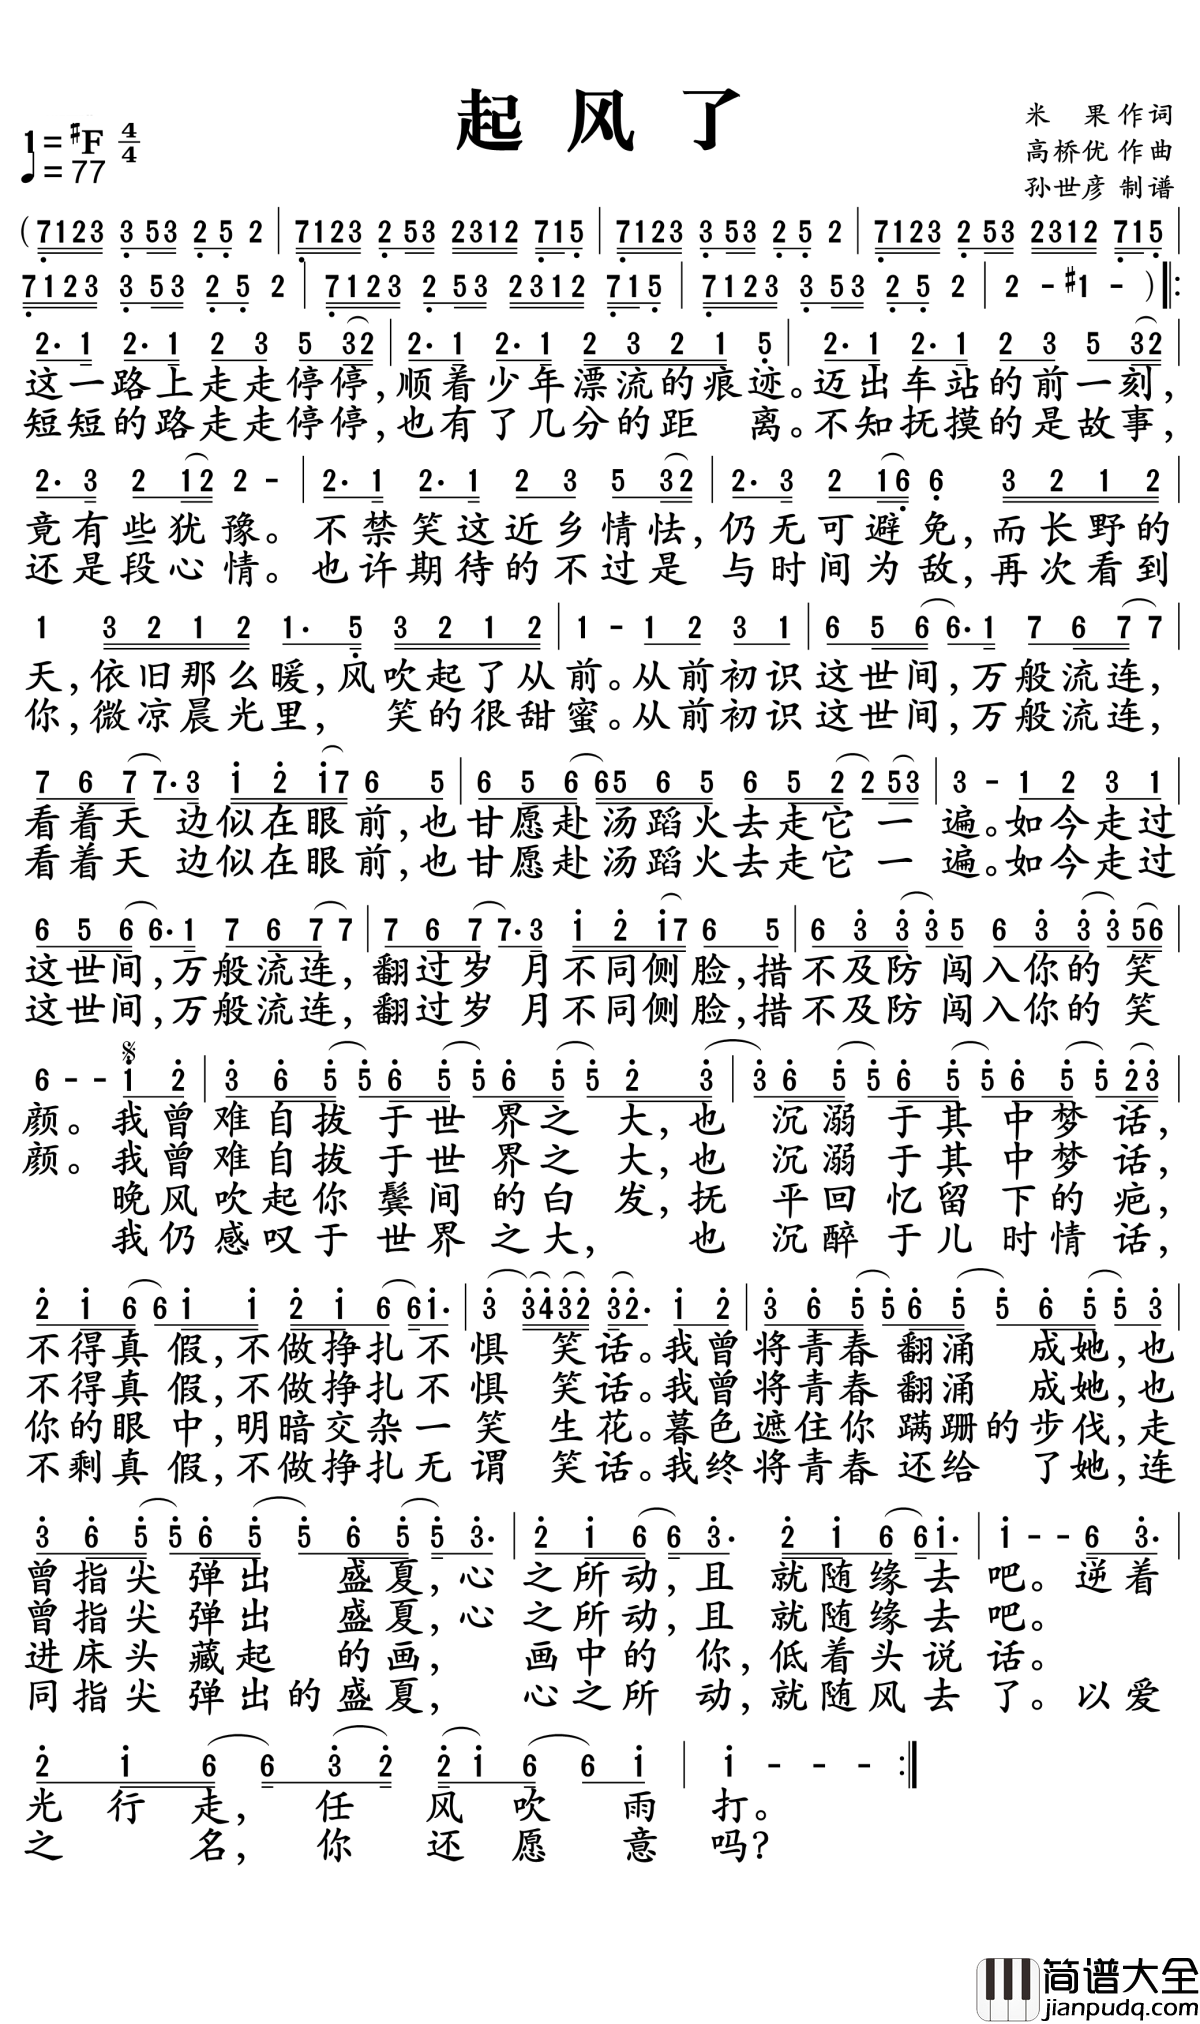 起风了
1=♯F 4/4
♩=77
米 果 作词
高桥优 作曲
孙世彦 制谱
(7123 3 53 2 5 2 | 7123 2 53 2312 715 | 7123 3 53 2 5 2 | 7123 2 53 2312 715 |
7123 3 53 2 5 2 | 7123 2 53 2312 715 | 7123 3 53 2 5 2 | 2 - ♯1 - ) ‖:
2· 1 2· 1 2 3 5 32 | 2· 1 2· 1 2 3 2 1 5 | 2· 1 2· 1 2 3 5 32 |
这一路上走走停停,顺着少年漂流的痕迹。迈出车站的前一刻,
短短的路走走停停,也有了几分的距 离。不知抚摸的是故事,
2· 3 2 12 2 - | 2· 1 2· 1 2 3 5 32 | 2· 3 2 16 6 3 2 1 2 |
竟有些犹豫。不禁笑这近乡情怯,仍无可避免,而长野的
还是段心情。也许期待的不过是 与时间为敌,再次看到
1 3 2 1 2 1· 5 3 2 1 2 | 1 - 1 2 3 1 | 6 5 6 6· 1 7 6 7 7 |
天,依旧那么暖,风吹起了从前。从前初识这世间,万般流连,
你,微凉晨光里, 笑的很甜蜜。从前初识这世间,万般流连,
7 6 7 7· 3 1 2 17 6 5 | 6 5 6 65 6 5 6 5 2 2 53 | 3 - 1 2 3 1 |
看着天 边似在眼前,也甘愿赴汤蹈火去走它 一 遍。如今走过
看着天 边似在眼前,也甘愿赴汤蹈火去走它 一 遍。如今走过
6 5 6 6· 1 7 6 7 7 | 7 6 7 7· 3 1 2 17 6 5 | 6 3 3 3 5 6 3 3 3 56 |
这世间,万般流连,翻过岁 月不同侧脸,措不及防 闯入你的 笑
这世间,万般流连,翻过岁 月不同侧脸,措不及防 闯入你的 笑
6 - - 1 2 | 3 6 5 5 6 5 5 6 5 5 2 3 | 3 6 5 5 6 5 5 6 5 5 23 |
颜。我曾难自拔 于世 界之 大,也 沉溺 于其 中梦 话,
颜。我曾难自拔 于世 界之 大,也 沉溺 于其 中梦 话,
晚风吹起你 鬓间 的白 发,抚 平回 忆留 下的 疤,
我仍感叹于 世界 之大, 也 沉醉 于儿 时情 话,
2 1 6 6 1 1 2 1 6 61· | 3 3432 32· 1 2 | 3 6 5 5 6 5 5 6 5 5 3 |
不得真 假,不做挣扎不 惧 笑话。我曾将青春 翻涌 成她,也
不得真 假,不做挣扎不 惧 笑话。我曾将青春 翻涌 成她,也
你的眼 中,明暗交杂一 笑 生花。暮色遮住你 蹒跚的步伐,走
不剩真 假,不做挣扎无 谓 笑话。我终将青春 还给 了她,连
3 6 5 5 6 5 5 6 5 5 3· | 2 1 6 6 3· 2 1 6 61· | 1 - - 6 3· |
曾指尖 弹出 盛夏,心 之所动,且 就随缘去 吧。逆着
曾指尖 弹出 盛夏,心 之所动,且 就随缘去 吧。
进床头 藏起 的画, 画中的 你,低着头说 话。
同指尖 弹出的盛夏, 心之所 动,就随风去 了。以爱
2 1 6 6 3 2 2 1 6 6 1 | 1 - - - :‖
光 行 走, 任 风 吹 雨 打。
之 名, 你 还 愿 意 吗?
简谱大全
jianpudq.com